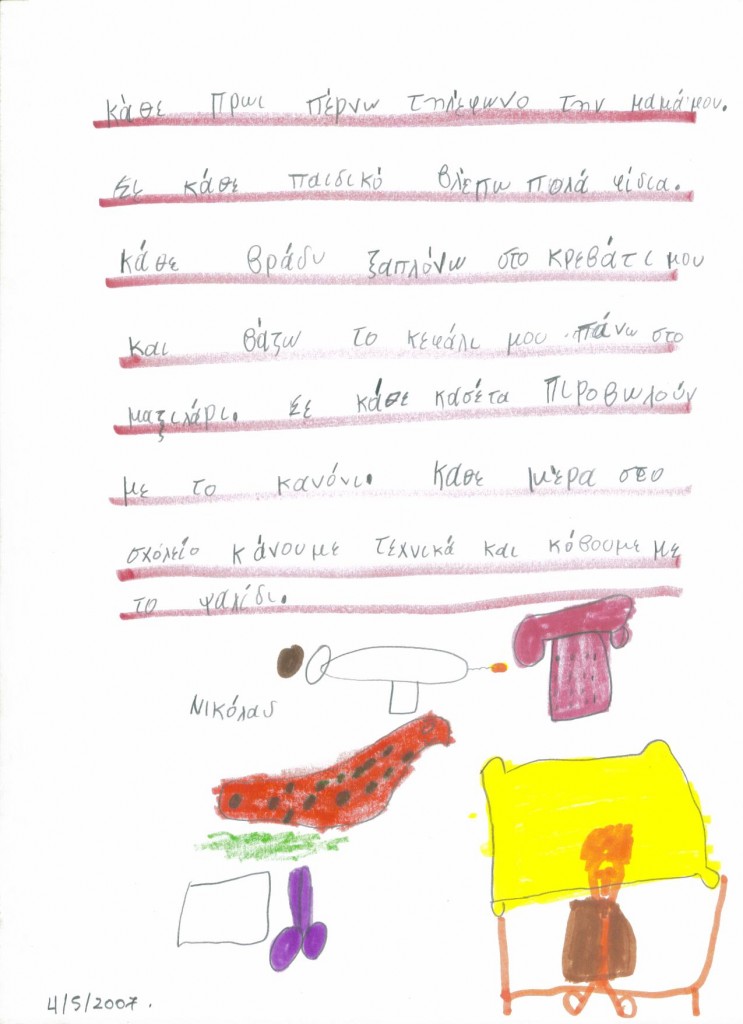 κάθε πρωι πέρνω τηλέφωνο την μαμά μου.
Σε κάθε παιδικό βλέπω πολά φίδια.
κάθε βράδυ ξαπλόνω στο κρεβάτι μου
και βάζω το κεφάλι μου πάνω στο
μαξιλάρι. Σε κάθε κασέτα πιροβωλούν
με το κανόνι. κάθε μέρα στο
σχολείο κάνουμε τεχνικά και κόβουμε με
το ψαλίδι.
ΝΙΚόλας
4/5/2007.